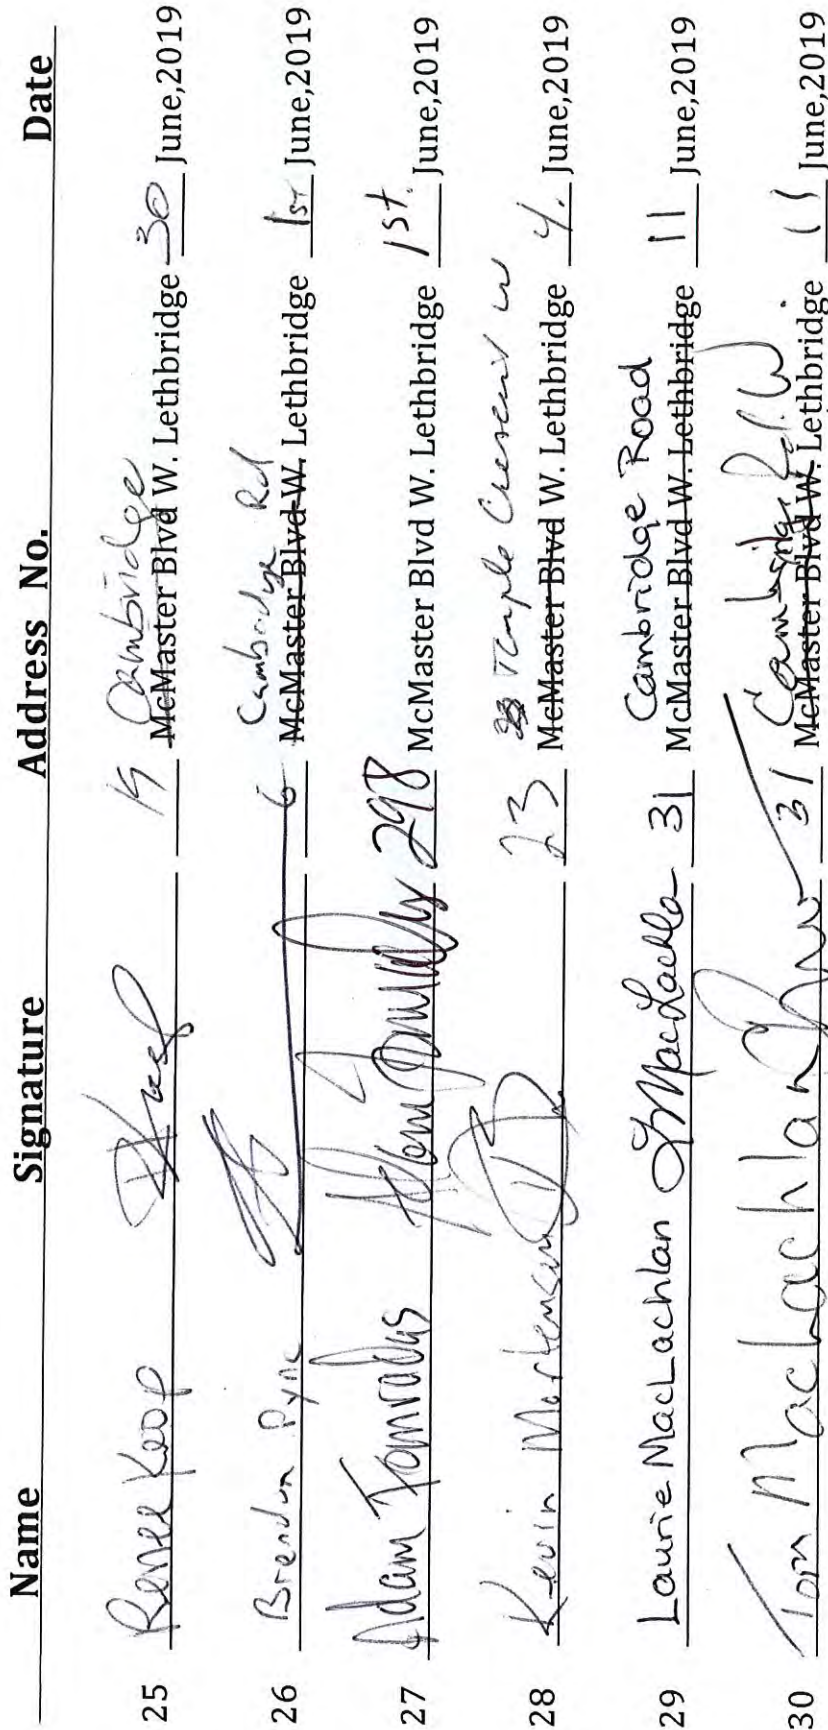 Name Signature Address No. Date
25 Renee Koop 19 Cambridge McMaster Blvd W. Lethbridge 30 June,2019
26 Brendan Pyne 6 Cambridge Rd McMaster Blvd W. Lethbridge 1st June,2019
27 Adam 298 McMaster Blvd W. Lethbridge 1st. June,2019
28 Kevin Mortensen 23 Temple Crescent W McMaster Blvd W. Lethbridge 4. June,2019
29 Laurie MacLachlan L MacLachla 31 Cambridge Road McMaster Blvd W. Lethbridge 11 June,2019
30 Tom MacLachlan 31 Cambridge Rd. W. McMaster Blvd W. Lethbridge 11 June,2019